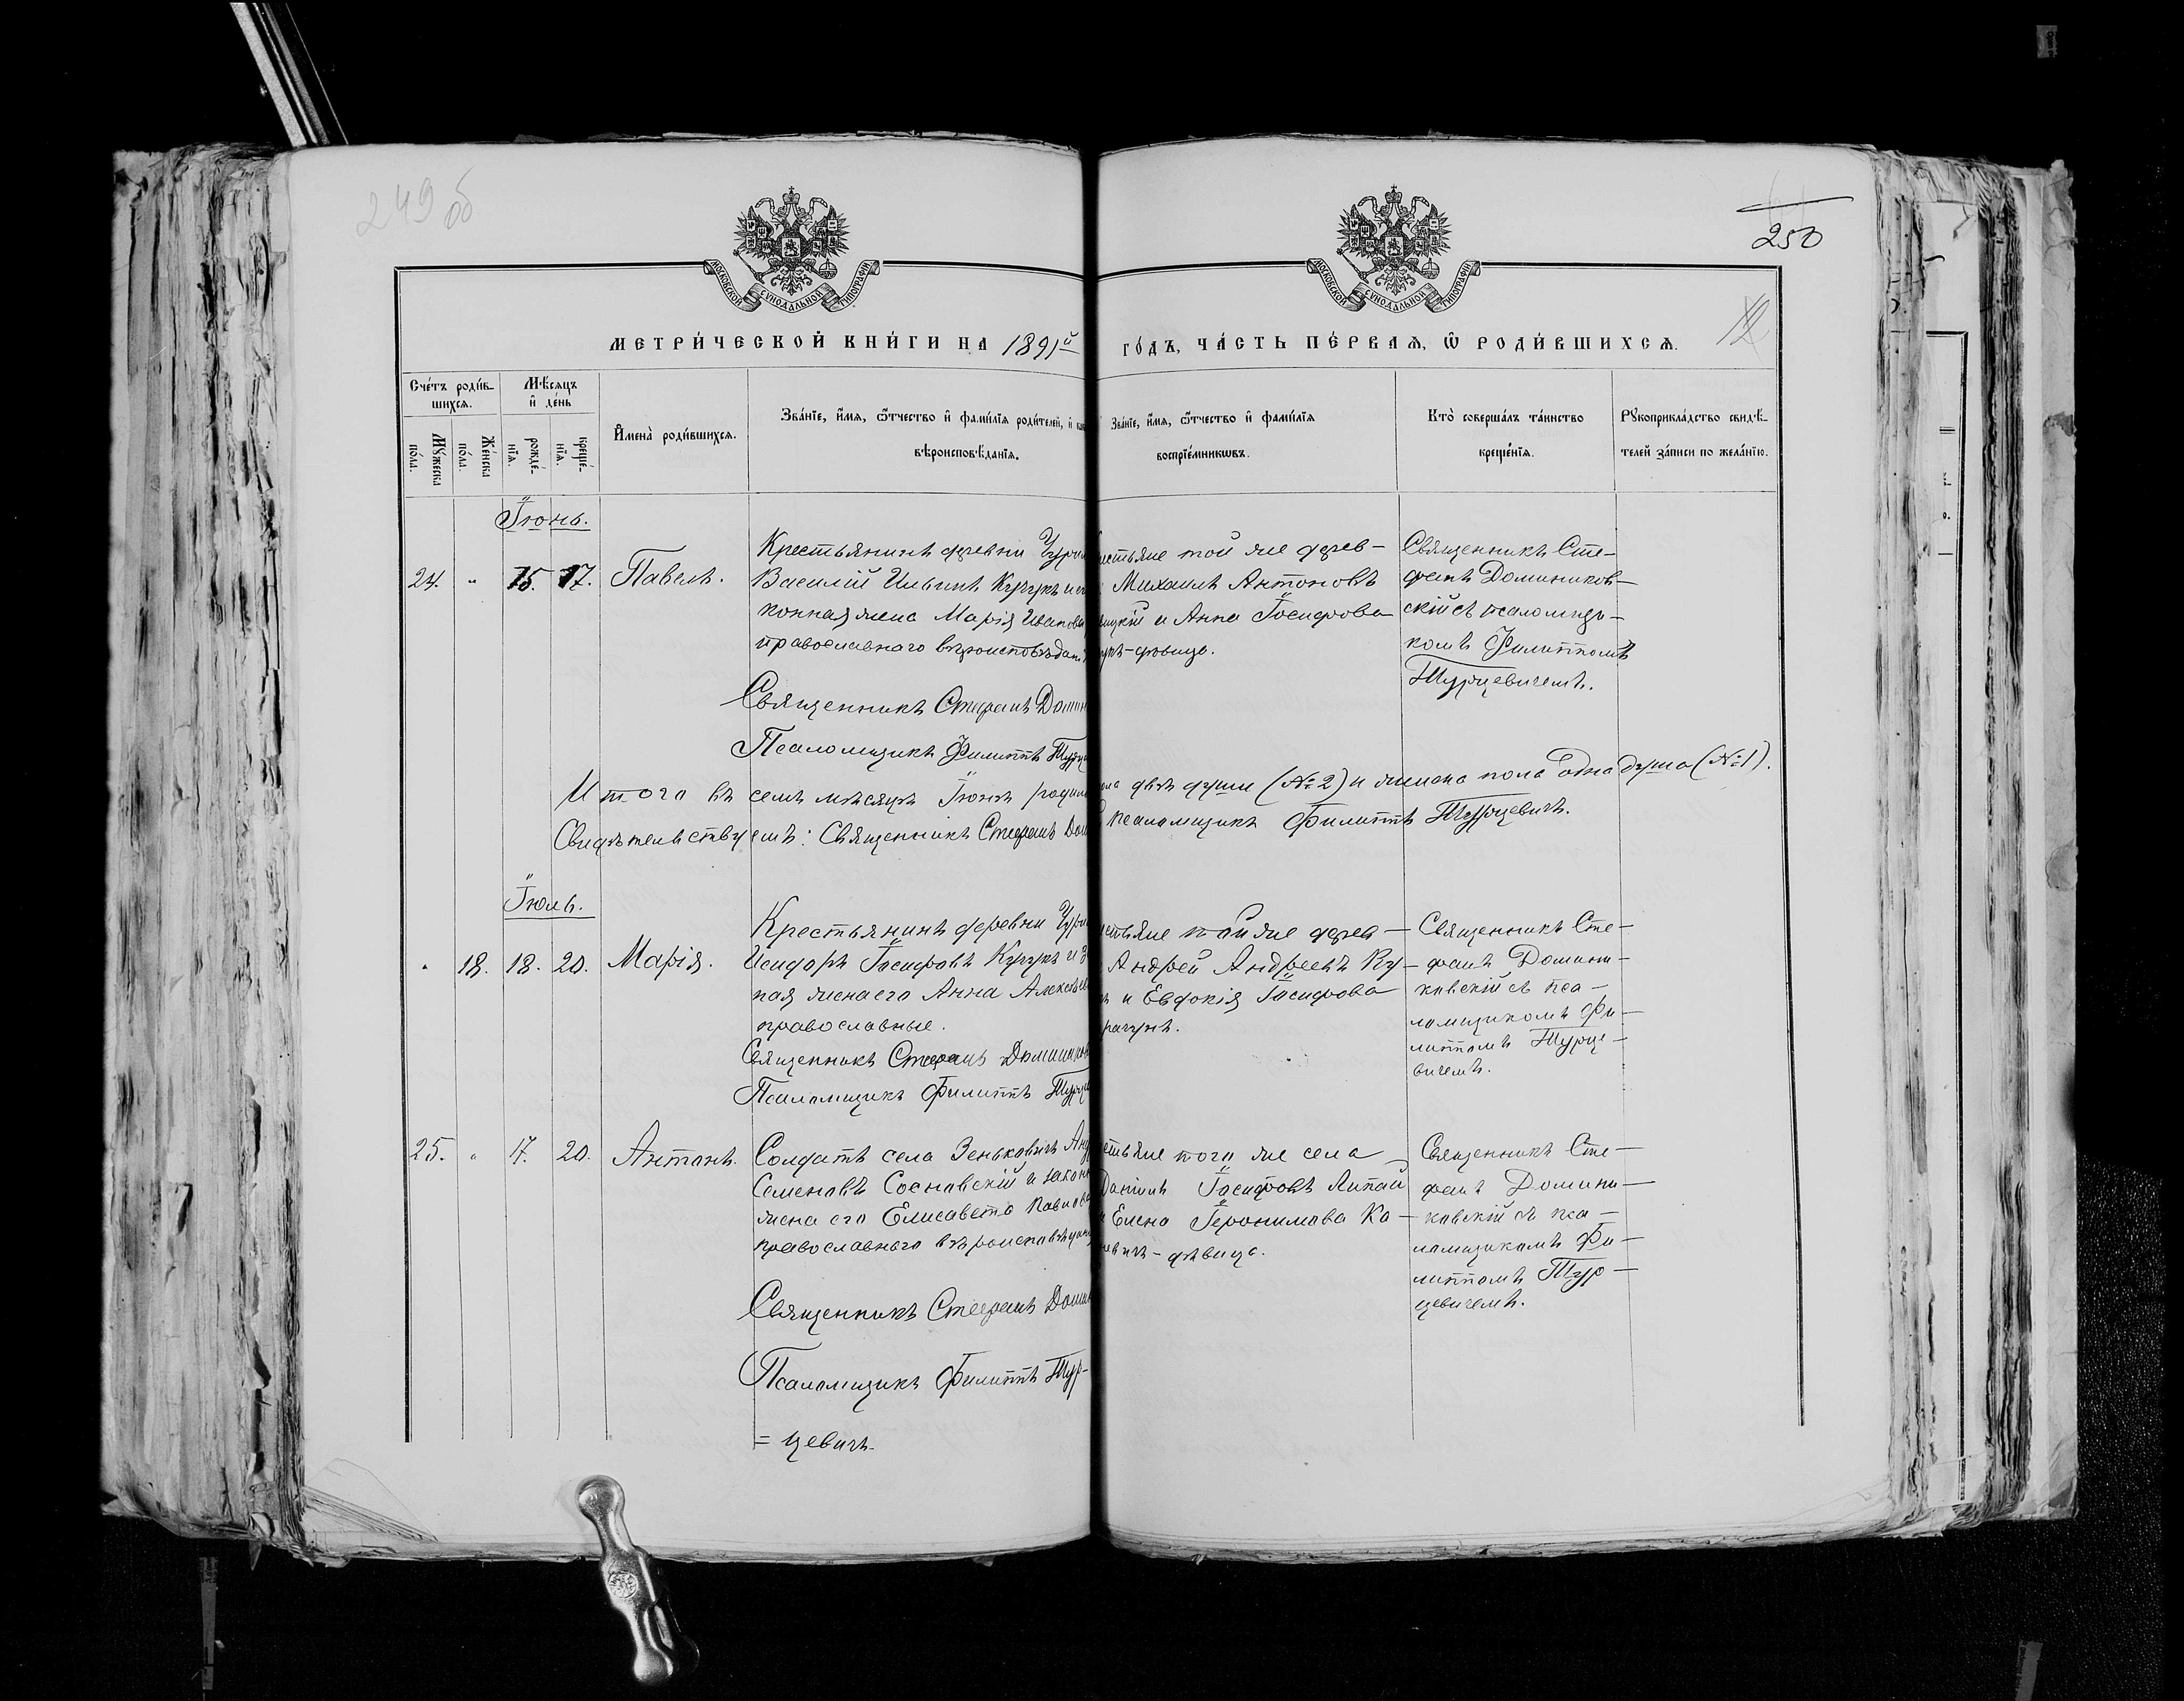 249 об
250
МОСКОВСКОЙ СУНОДАЛЬНОЙ ТИПОГРАФІИ
МОСКОВСКОЙ СУНОДАЛЬНОЙ ТИПОГРАФІИ
12
МЕТРИ́ЧЕСКОЙ КНИ́ГИ НА 1891й
ГО́ДЪ, ЧА́СТЬ ПЕ́РВАЯ, Ѡ РОДИ́ВШИХСЯ.
Сче́тъ роди́в-
шихся.
Мѣ́сяцъ
и де́нь
Му́жеска
по́ла.
Же́нска
по́ла.
рожде́-
нїя.
креще́-
нїя.
Имена̀ роди́вшихся.
Зва́нїе, и́мя, ѻ҆́тчество и фами́лїя роди́телей, и
вѣроисповѣ́данїя.
Зва́нїе, и́мя, ѻ҆́тчество и фами́лїя
воспрїе́мникѡвъ.
Кто̀ соверша́лъ та́инство
креще́нїя.
Рꙋкоприкла́дство свидѣ́-
телей за́писи по жела́нїю.
Іюнь.
24. " 15. 17. Павелъ.
Крестьянинъ деревни Чури
Василій Ильинъ Кучукъ и
конная жена Марія Иванова
православнаго вѣроисповѣдан
Священникъ Стефанъ Домин
Псаломщикъ Филиппъ Турц
стьяне той же дерев-
Михаилъ Антоновъ
ицкій и Анна Іосифова
укъ-дѣвица.
Священникъ Сте-
фанъ Домиников-
скій съ псаломщи-
комъ Филиппомъ
Турцевичемъ.
Итого въ семъ мѣсяцѣ Іюнѣ родил ола двѣ души (№ 2) и женска пола одна душа (№ 1).
Свидѣтельствуемъ: Священникъ Стефанъ Дом Псаломщикъ Филиппъ Турцевичъ.
Іюль.
" 18. 18. 20. Марія.
Крестьянинъ деревни Чури
Исидоръ Іосифовъ Кучукъ и з
ная жена его Анна Алексѣев
православные.
Священникъ Стефанъ Домиников
Псаломщикъ Филиппъ Турце
стьяне той же дерев-
Андрей Андреевъ Ку-
ъ и Евдокія Іосифова
рачунъ.
Священникъ Сте-
фанъ Домини-
ковскій съ пса-
ломщикомъ Фи-
липпомъ Турце-
вичемъ.
25. " 17. 20. Антонъ.
Солдатъ села Зеньковичъ Анд
Семеновъ Сосновскій и закон
жена его Елисавета Павлова
православнаго вѣроисповѣдан
Священникъ Стефанъ Домин
Псаломщикъ Филиппъ Тур-
= цевичъ.
стьяне того же села
Даніилъ Іосифовъ Липай
и Елена Іеронимова Ка-
евичъ-дѣвица.
Священникъ Сте-
фанъ Домини-
ковскій съ пса-
ломщикомъ Фи-
липпомъ Тур-
цевичемъ.